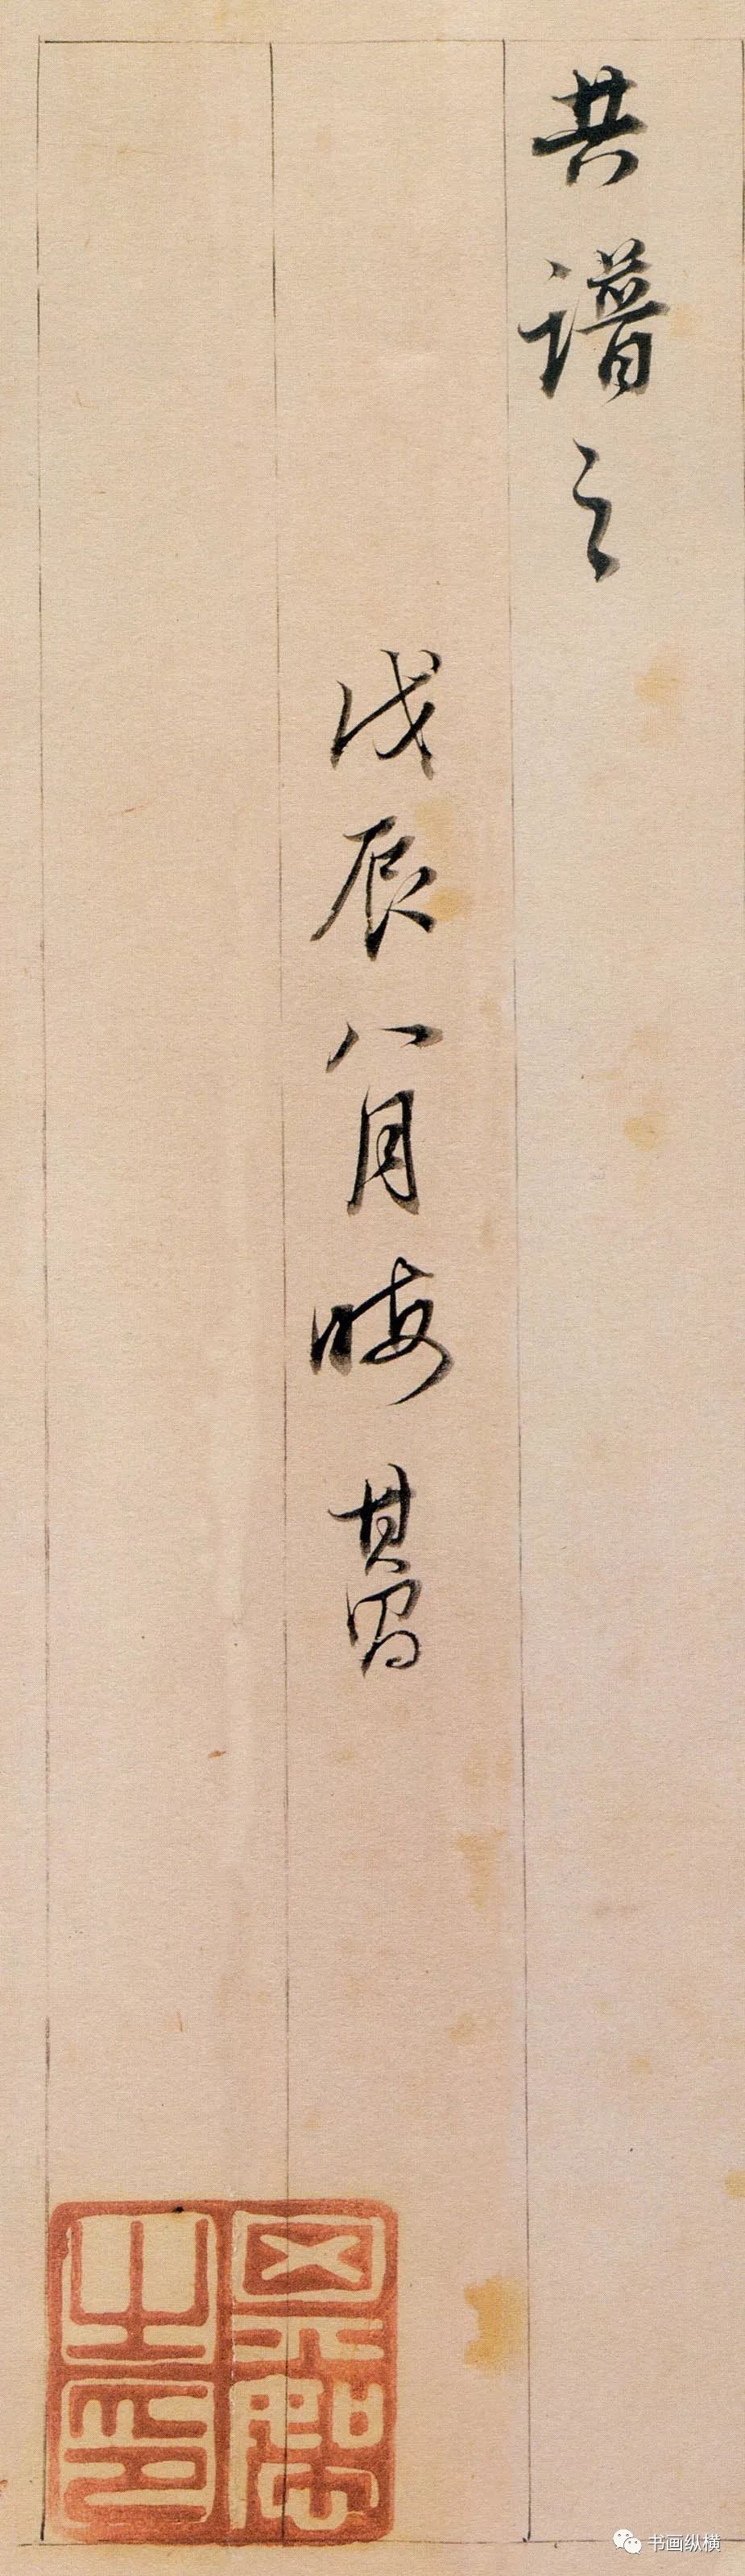 共譜之
戊辰八月晦 其昌
之印
书画纵横